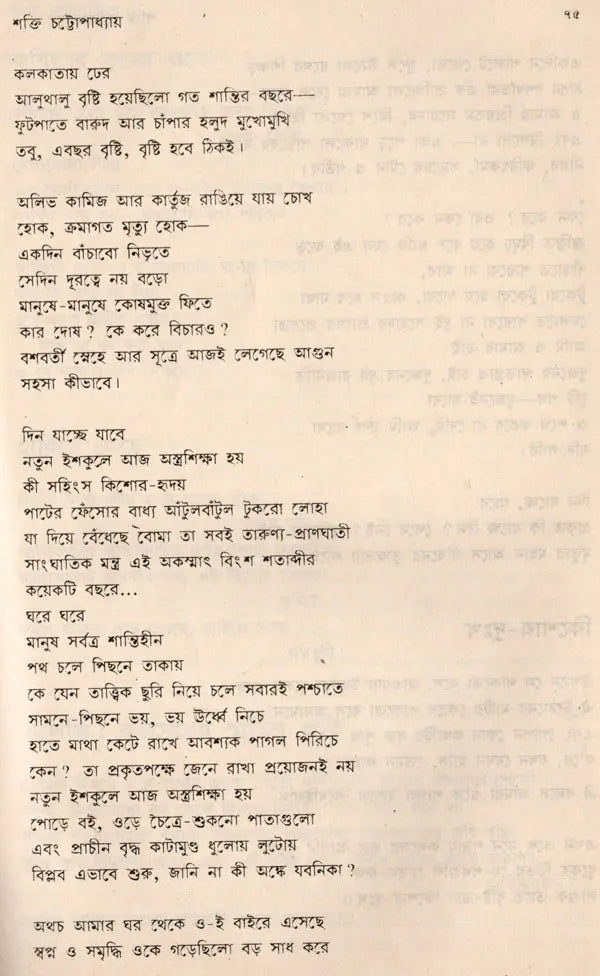 শক্তি চট্টোপাধ্যায়
৭৫
কলকাতায় ঢের
আলুথালু বৃষ্টি হয়েছিলো গত শান্তির বছরে—
ফুটপাতে বারুদ আর চাঁপার হলুদ মুখোমুখি
তবু, এবছর বৃষ্টি, বৃষ্টি হবে ঠিকই।
অলিভ কামিজ আর কার্তুজ রাঙিয়ে যায় চোখ
হোক, ক্রমাগত মৃত্যু হোক—
একদিন বাঁচাবো নিভৃতে
সেদিন দূরত্বে নয় বড়ো
মানুষে-মানুষে কোষমুক্ত ফিতে
কার দোষ? কে করে বিচারও?
বশবর্তী স্নেহে আর সূত্রে আজই লেগেছে আগুন
সহসা কীভাবে।
দিন যাচ্ছে যাবে
নতুন ইশকুলে আজ অস্ত্রশিক্ষা হয়
কী সহিংস কিশোর-হৃদয়
পাটের ফেঁসোর বাধ্য আঁটুলবাঁটুল টুকরো লোহা
যা দিয়ে বেঁধেছে বোমা তা সবই তারুণ্য-প্রাণঘাতী
সাংঘাতিক মন্ত্র এই অকস্মাৎ বিংশ শতাব্দীর
কয়েকটি বছরে...
ঘরে ঘরে
মানুষ সর্বত্র শান্তিহীন
পথ চলে পিছনে তাকায়
কে যেন তাত্ত্বিক ছুরি নিয়ে চলে সবারই পশ্চাতে
সামনে-পিছনে ভয়, ভয় উর্ধ্বে নিচে
হাতে মাথা কেটে রাখে আবশ্যক পাগল পিরিচে
কেন? তা প্রকৃতপক্ষে জেনে রাখা প্রয়োজনই নয়
নতুন ইশকুলে আজ অস্ত্রশিক্ষা হয়
পোড়ে বই, ওড়ে চৈত্রে-শুকনো পাতাগুলো
এবং প্রাচীন বৃদ্ধ কাটামুণ্ড ধুলোয় লুটোয়
বিপ্লব এভাবে শুরু, জানি না কী অঙ্কে যবনিকা?
অথচ আমার ঘর থেকে ও-ই বাইরে এসেছে
স্বপ্ন ও সমৃদ্ধি ওকে গড়েছিলো বড় সাধ করে